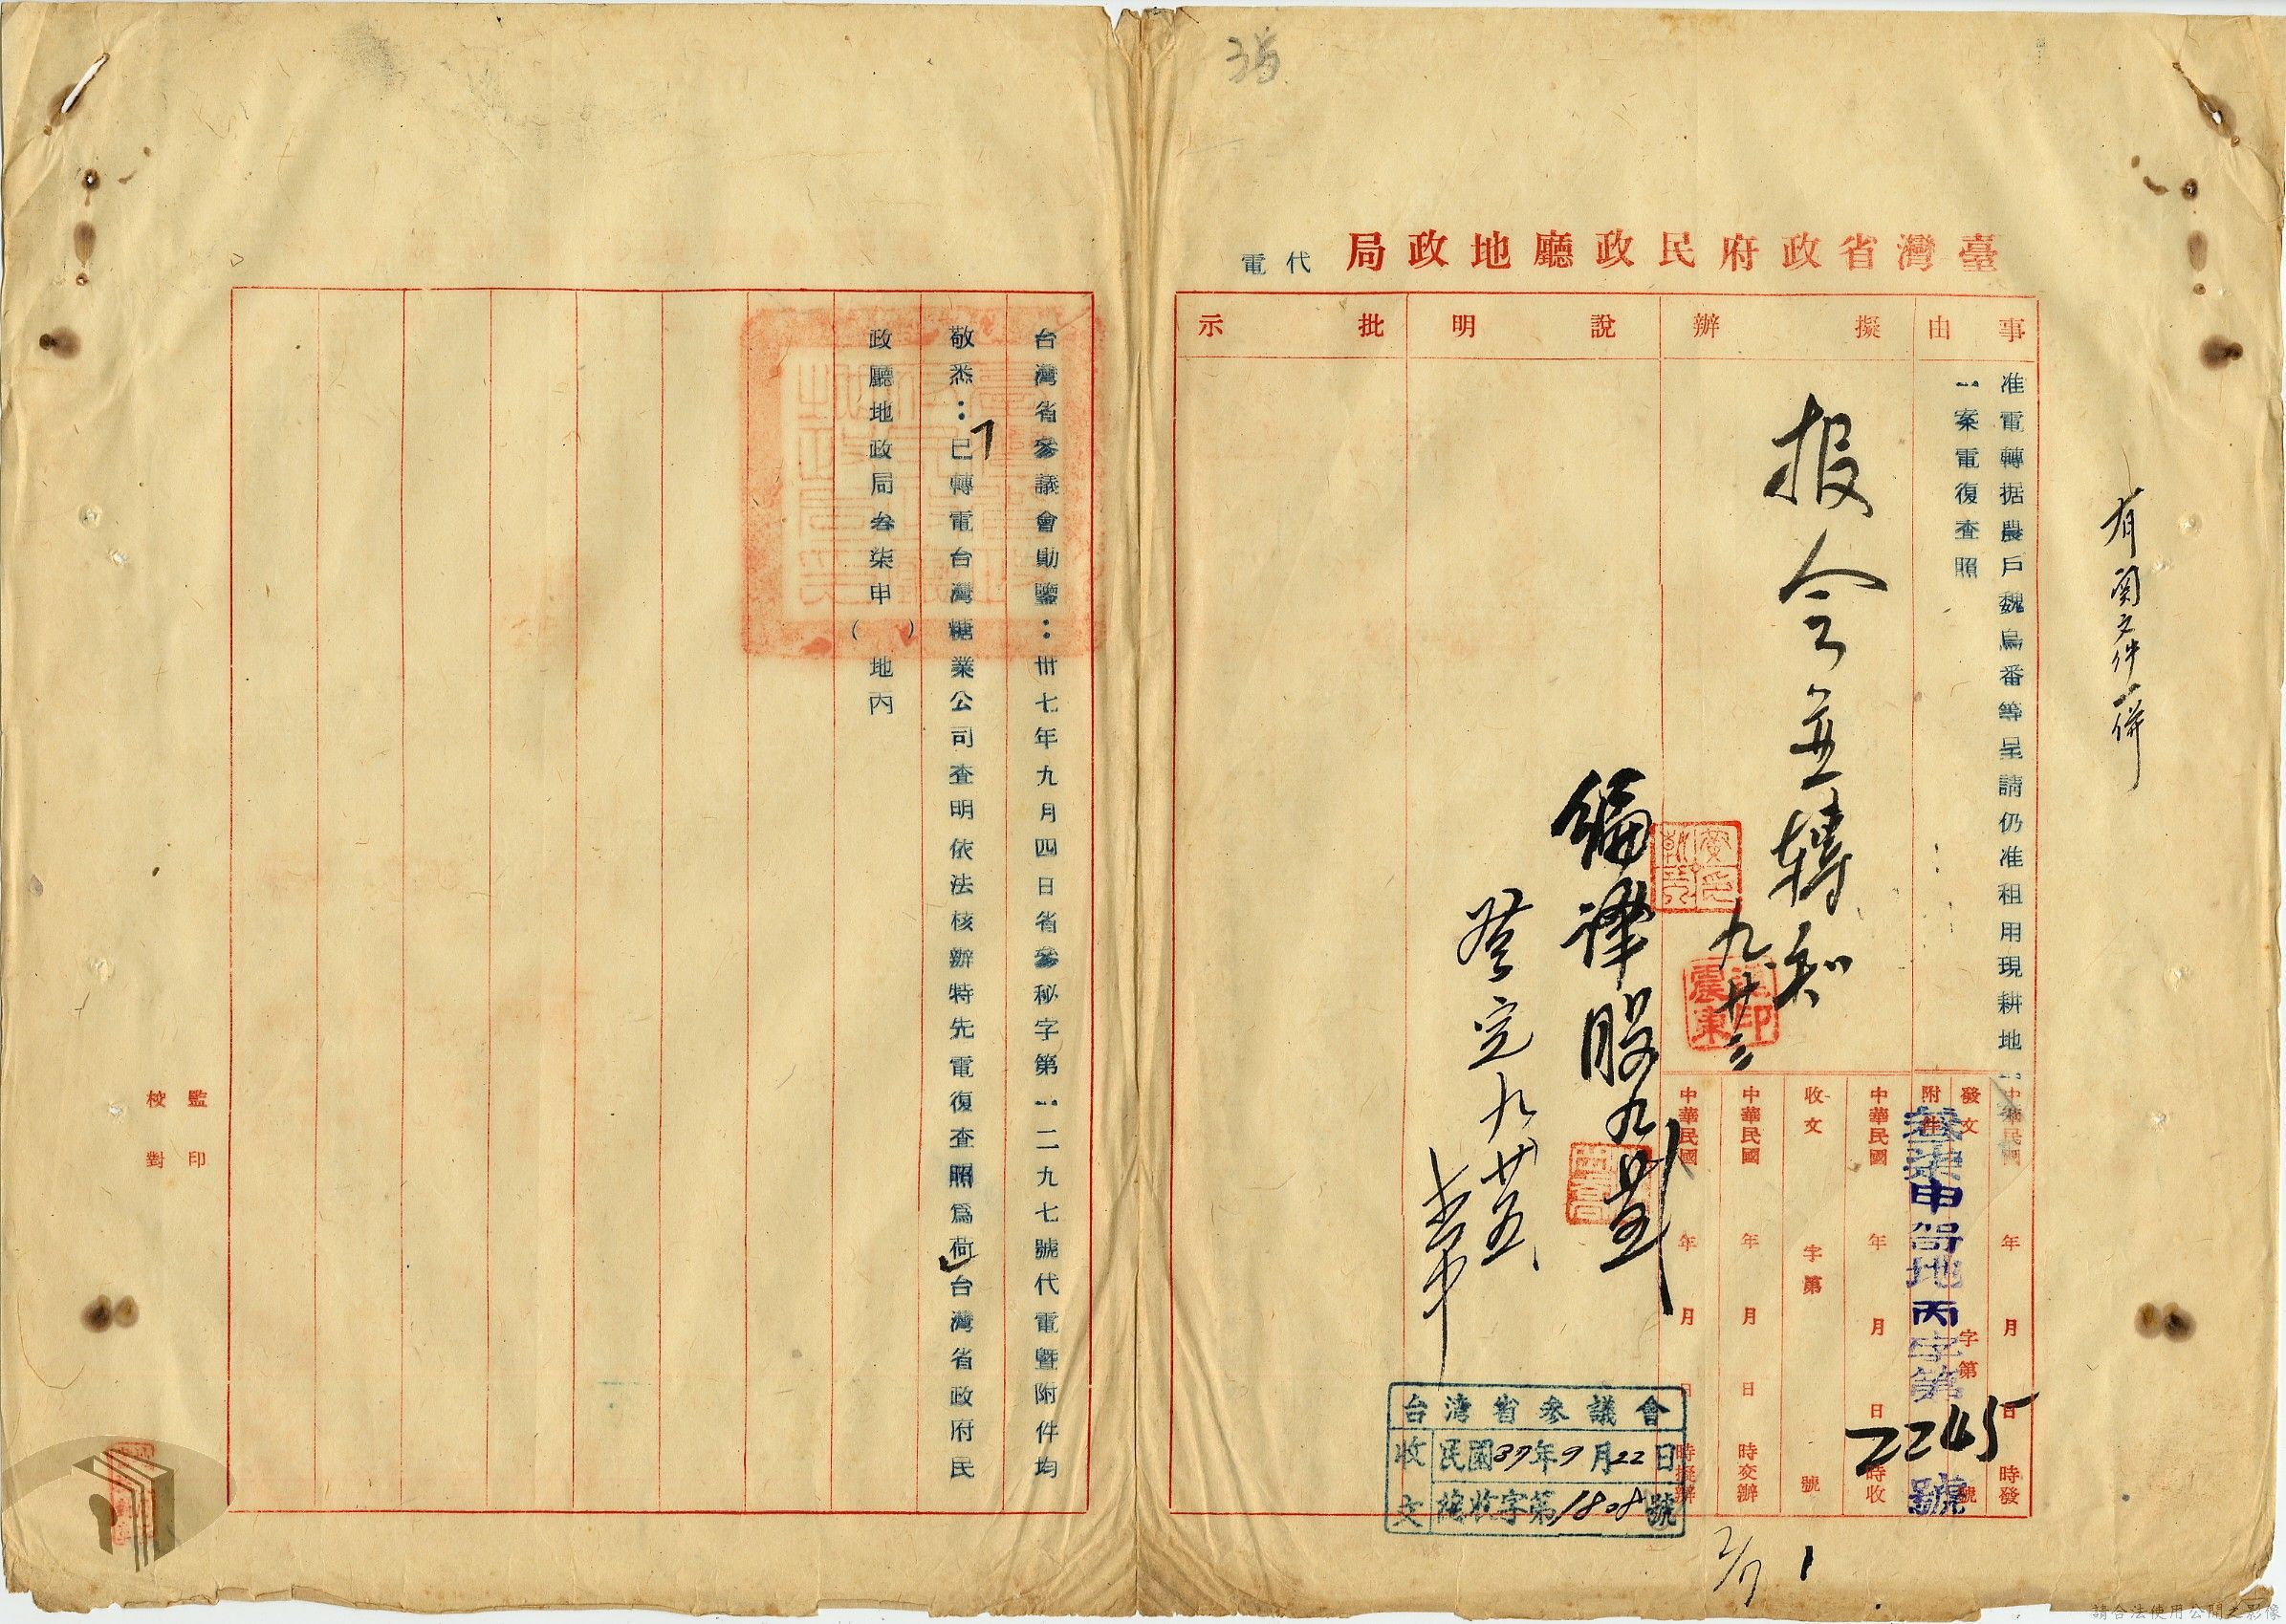 35
臺灣省政府民政廳地政局代電
有關文件併
事由
准電轉据農戶魏烏番等呈請仍准租用現耕地一
一案電復查照
擬辦
報會並轉知
九廿三
說明
編譯股九
登完九廿五
批示
中華民國 年 月 日 時發
發文 字第 號
附件
叁柒申 地丙字第2245號
中華民國 年 月 日 時收
收文 字第 號
中華民國 年 月 日 時交辦
中華民國 年 月 日 時擬辦
台灣省參議會
收文
民國37年9月22日
總收字第1808號
台灣省參議會勛鑒：卅七年九月四日省參秘字第一二九七號代電暨附件均
敬悉：已轉電台灣糖業公司查明依法核辦特先電復查照為荷台灣省政府民
政廳地政局叁柒申（ ）地丙
監印
校對
請合法使用公開之影像